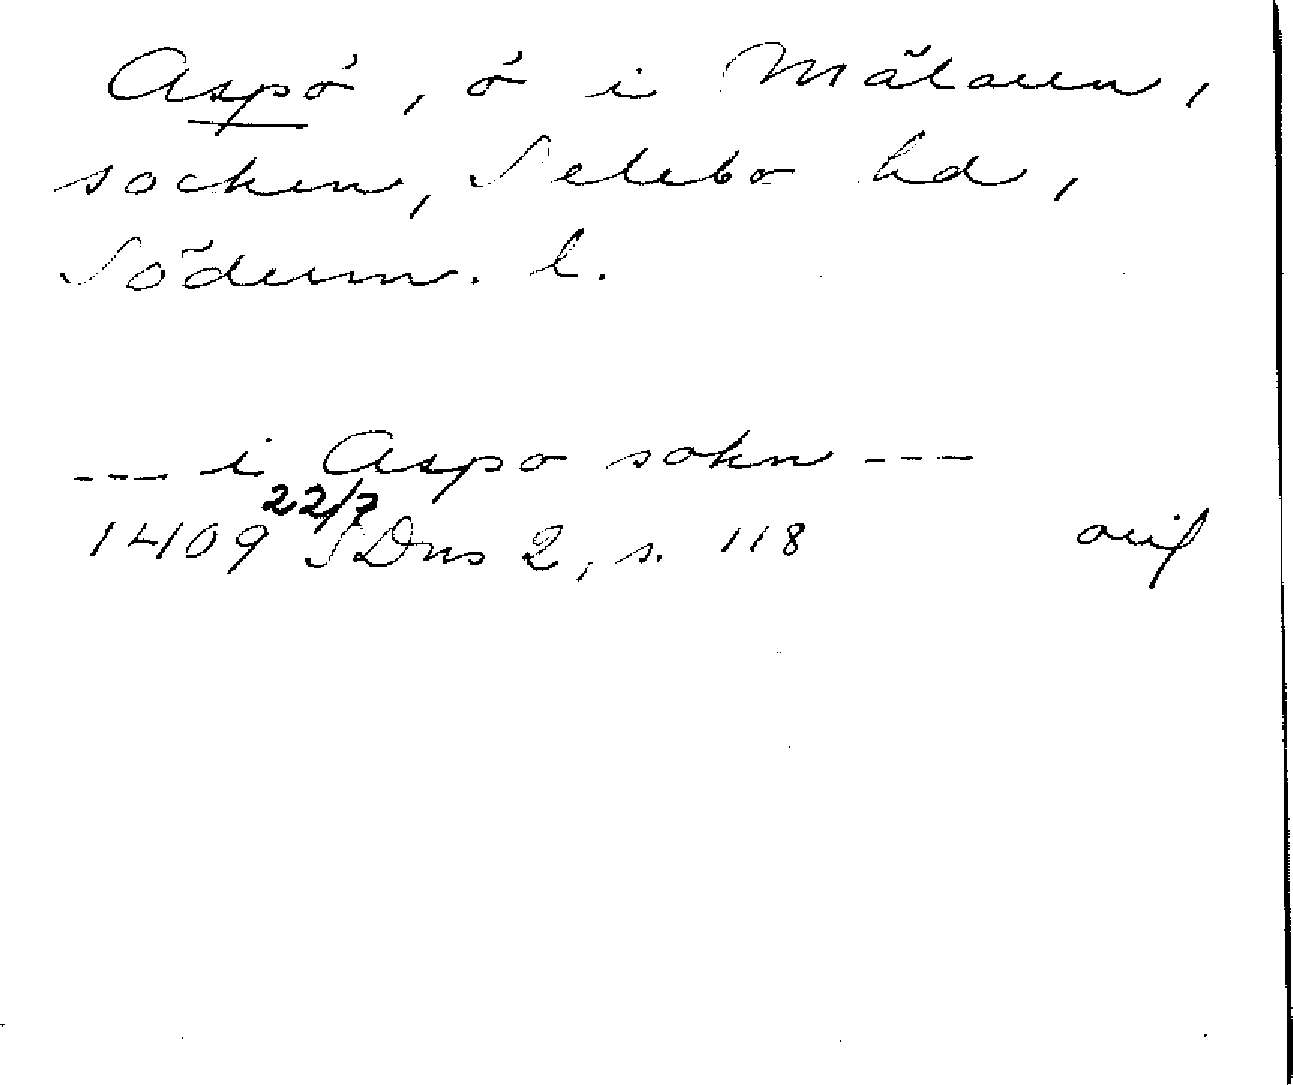 Aspö, ö i Mälaren,
socken, Selebo hd,
Söderm. l.
--- i Aspo sokn ---
1409 22/7 SDns 2, s. 118 orig